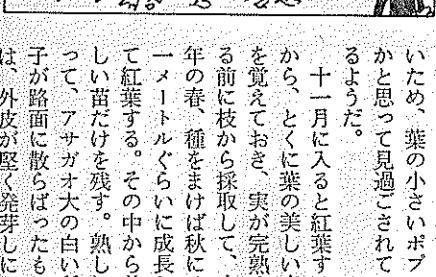 いため、葉の小さいポプ
かと思って見過ごされて
るようだ。
十一月に入ると紅葉す
から、とくに葉の美しい
を覚えておき、実が完熟
る前に枝から採取して、
年の春、種をまけば秋に
一メートルぐらいに成長
て紅葉する。その中から
しい苗だけを残す。熟し
って、アサガオ大の白い
子が路面に散らばったも
は、外皮が堅く発芽しに